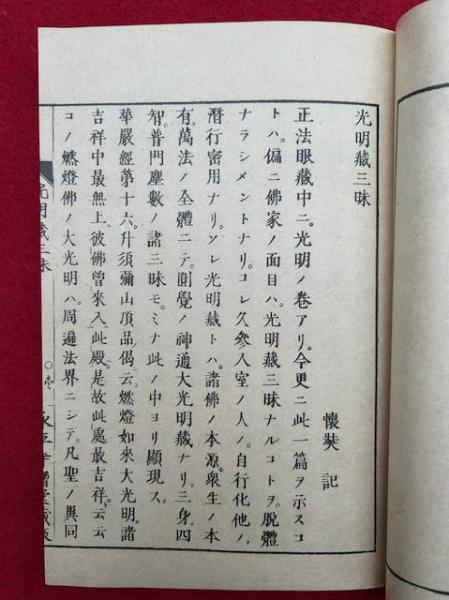 光明藏三昧
懷奘 記
正法眼藏中ニ。光明ノ卷アリ。今更ニ此一篇ヲ示スコ
トハ。偏ニ佛家ノ面目ハ。光明藏三昧ナルコトヲ。脫體
ナラシメントナリ。コレ久參入室ノ人ノ。自行化他ノ。
潛行密用ナリ。ソレ光明藏トハ。諸佛ノ本源。衆生ノ本
有。萬法ノ全體ニテ。圓覺ノ神通大光明藏ナリ。三身。四
智。普門塵數ノ諸三昧モ。ミナ此ノ中ヨリ顯現ス。
華嚴經第十六。升須彌山頂品偈云。燃燈如來大光明。諸
吉祥中最無上。彼佛曾來入此殿。是故此處最吉祥。云云
コノ燃燈佛ノ大光明ハ。周遍法界ニシテ。凡聖ノ異同
光明藏三昧
○壱